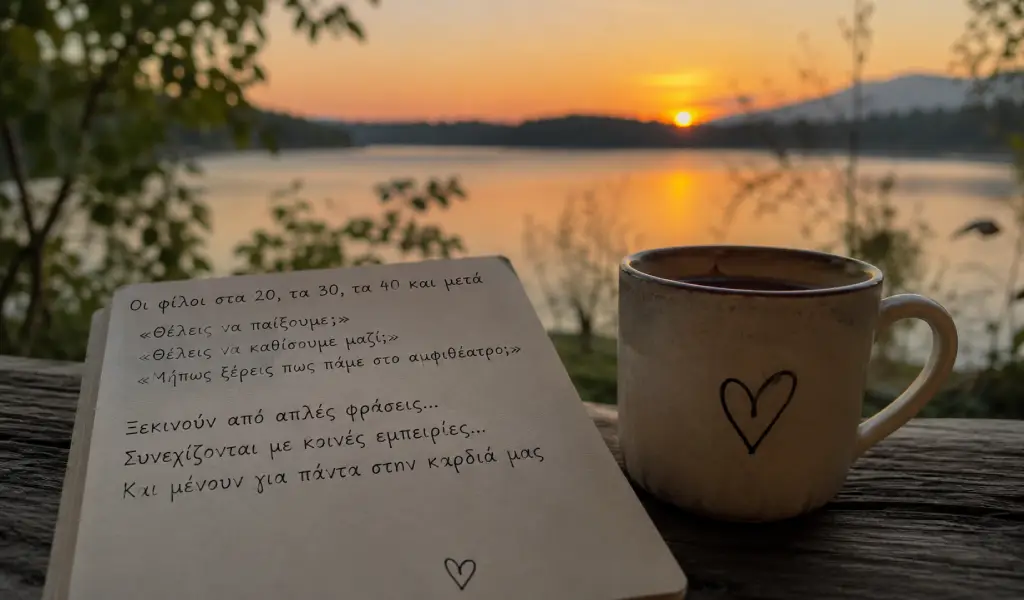 Οι φίλοι στα 20, τα 30, τα 40 και μετά
«Θέλεις να παίξουμε;»
«Θέλεις να καθίσουμε μαζί;»
«Μήπως ξέρεις πως πάμε στο αμφιθέατρο;»
Ξεκινούν από απλές φράσεις...
Συνεχίζονται με κοινές εμπειρίες...
Και μένουν για πάντα στην καρδιά μας